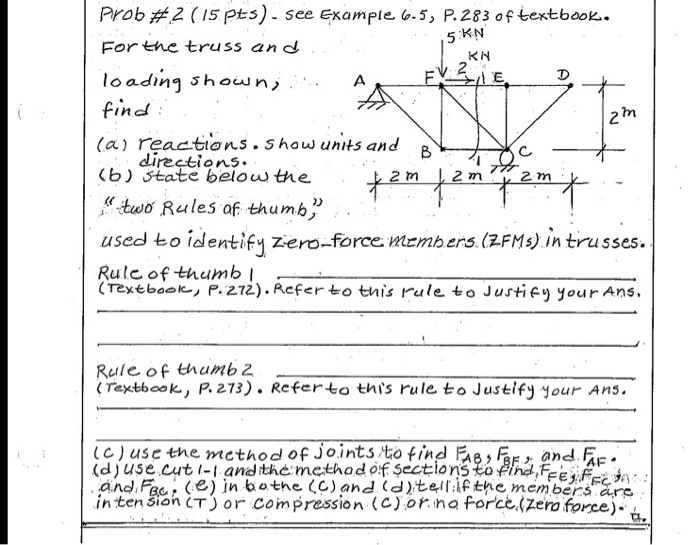 Prob #2 (15 pts) - see Example 6.5, P. 283 of textbook.
For the truss and
loading shown,
find:
5 KN
2 KN
A
F
E
D
B
C
1
1
2 m
2 m
2 m
2 m
(a) reactions. Show units and
directions.
(b) State below the
"two Rules of thumb,"
used to identify zero-force members (ZFMs) in trusses.
Rule of thumb 1
(Textbook, P. 272). Refer to this rule to Justify your Ans.
Rule of thumb 2
(Textbook, P. 273). Refer to this rule to Justify your Ans.
(c) use the method of joints to find FAB, FBF, and FAF.
(d) use cut 1-1 and the method of sections to find, FFE, FFC,
and FBC. (e) in bothe (c) and (d) tell if the members are
in tension (T) or compression (C) or no force (zero force).